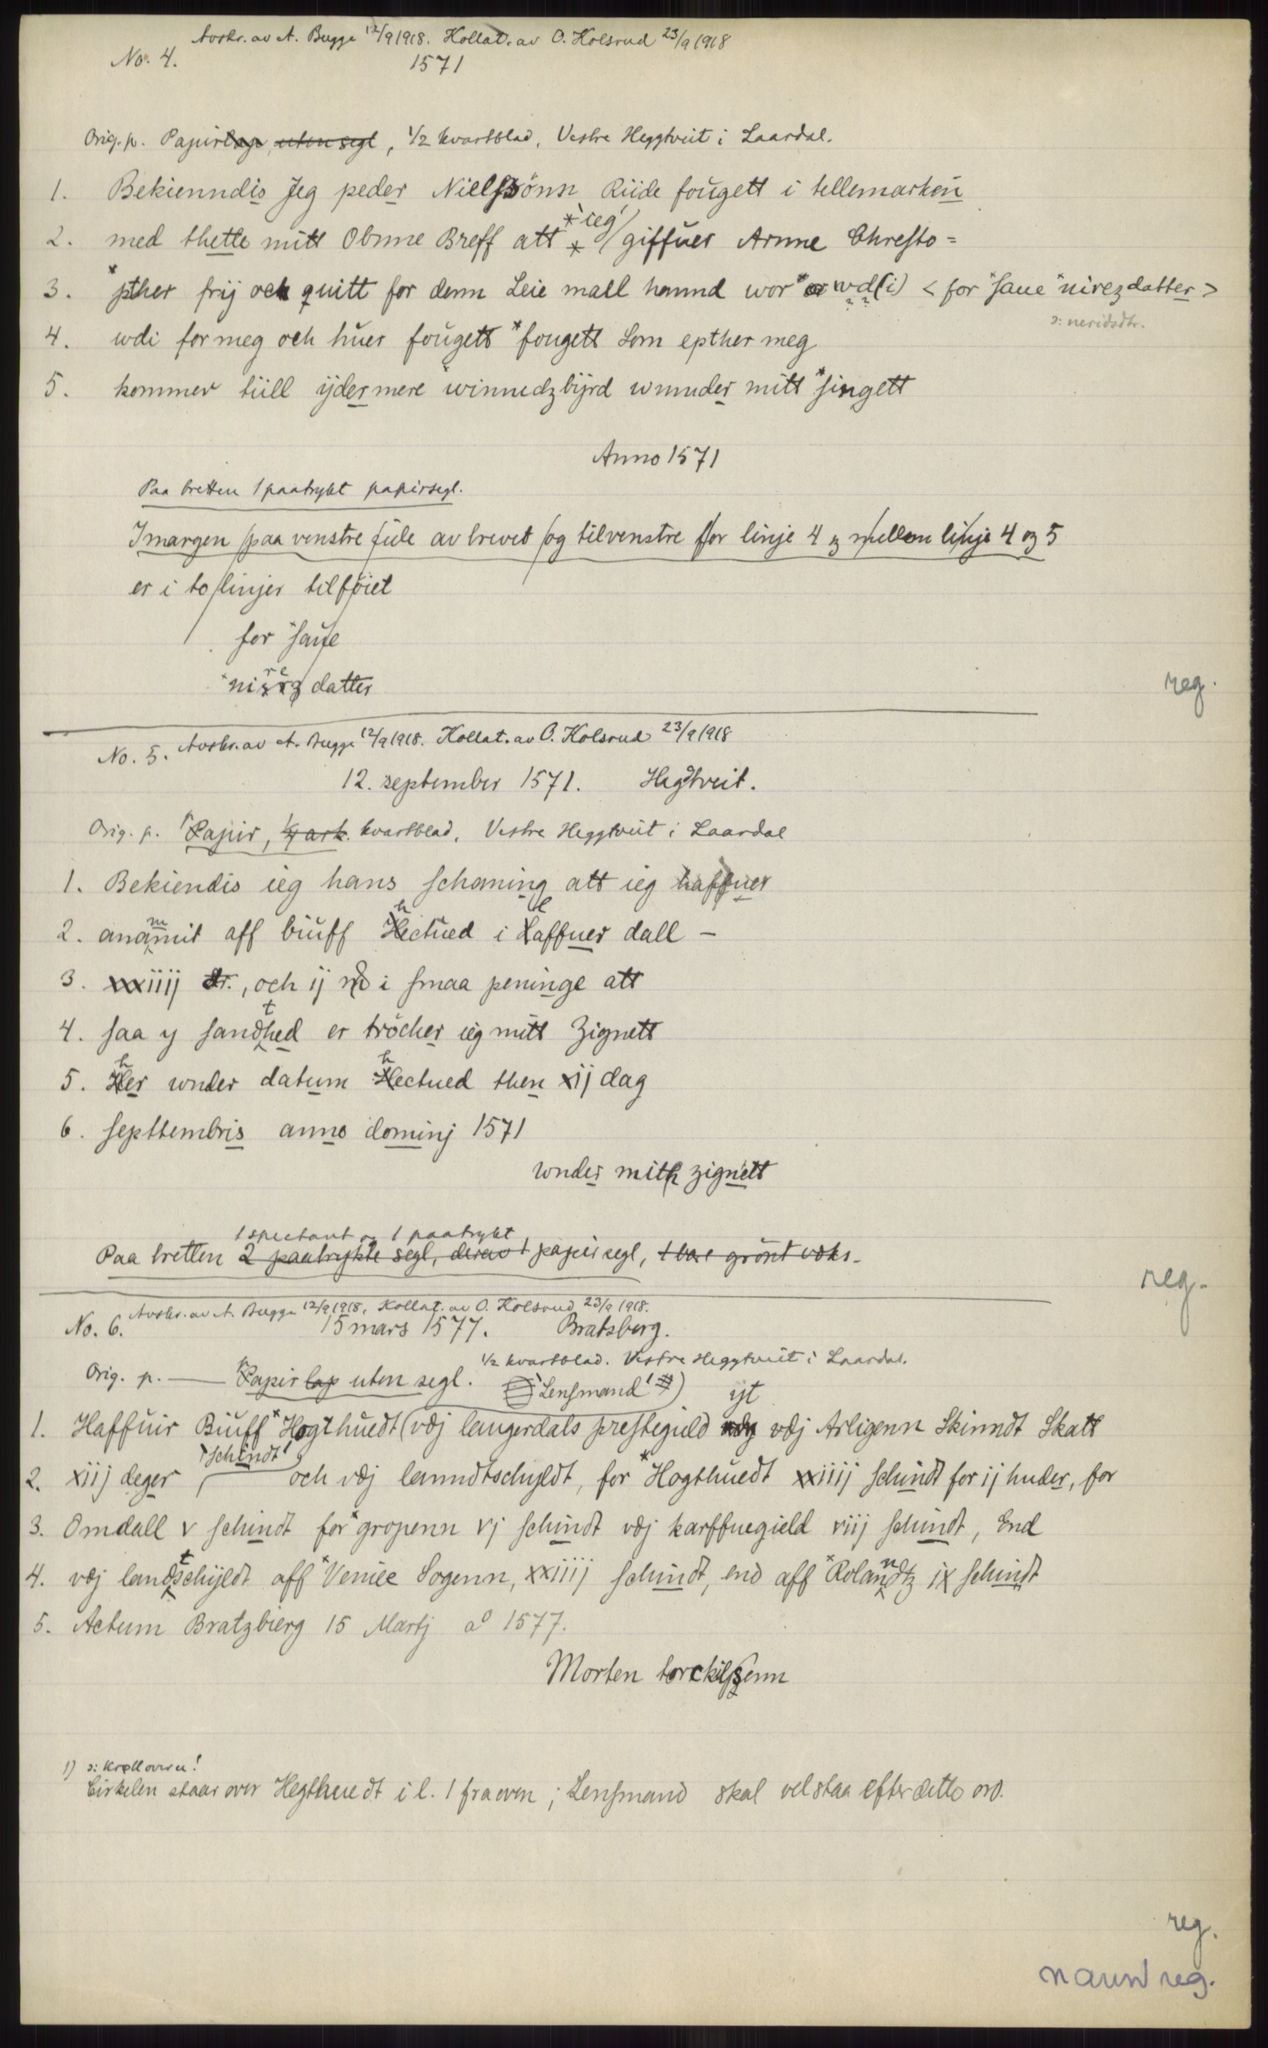 Avskr. av A. Bugge 12/9 1918. Kollat. av O. Kolsrud 23/9 1918
No. 4.
1571
Orig. p. Papirlap, uten segl, 1/2 kvartblad, Vestre Heggtveit i Laardal.
1. Bekienndis Jeg peder Nielssönn Riide foŭgett i tellemarken
2. med thette mitt Obnne Breff att * 'ieg' * giffŭer Arnne Chresto=
3. *pther frij och quitt for denn Leie mall hannd wor * wd(i) < for *saue *nirezdatter >
ɔ: neridsdtr.
4. wdi for meg och hŭer foŭgett *fougett Som epther meg
5. kommer tiill ÿdermere winnedzbÿrd wnnder mitt *singett
Anno 1571
Paa bretten 1 paatrykt papirsegl.
I margen paa venstre side av brevet og tilvenstre for linje 4 og mellem linje 4 og 5
er i to linjer tilföiet
for *saŭe
*nirez datter
reg.
Avskr. av A. Bugge 12/9 1918. Kollat. av O. Kolsrud 23/9 1918
No. 5.
12. september 1571. Hegtveit.
Orig. p. Papir, 1/4 ark. kvartblad, Vestre Heggtveit i Laardal
1. Bekiendis ieg hans schaning att ieg haffuer
2. anammit aff biuff hectŭed i laffuer dall –
3. xxiiij dr., och ij i smaa peninge att
4. saa y sandthed er tröcher ieg mitt Zignett
5. her wnder datum hectued then xij dag
6. septtembris anno dominj 1571
wnder mith zignett
1 spectant og 1 paatrykt
Paa bretten 2 paatrykte segl, derav 1 papirsegl, 1 bare grönt voks.
reg.
Avskr. av A. Bugge 12/9 1918. Kollat. av O. Kolsrud 23/9 1918.
No. 6.
15 mars 1577. Bratsberg.
Orig. p. — Papirlap uten segl. 1/2 kvartblad. Vestre Heggtveit i Laardal.
'Lensmand' yt
1. Haffuir Biŭff *Hogthŭedt vdj laugerdals prestegield vdj Arligenn Skinndt Skatt
'schindt'
2. xiij deger och vdj lanndtschyldt, for *Hogthŭedt xxiiij schindt for ij huder, for
3. Omdall v schindt for *gropenn vj schindt vdj karffuegield viij schindt, End
4. vdj landtschÿldt aff *Veniee Sogenn, xxiiij schindt, end aff *Rolanndtz ix schindt
5. Actum Bratzbierg 15 Martj aº 1577.
Morten torckilsenn
1) ɔ: Krølloven!
Cirkelen staar over Hegthuedt i l. 1 fra oven; Lensmand skal vel staa efter dette ord.
reg.
navnreg.